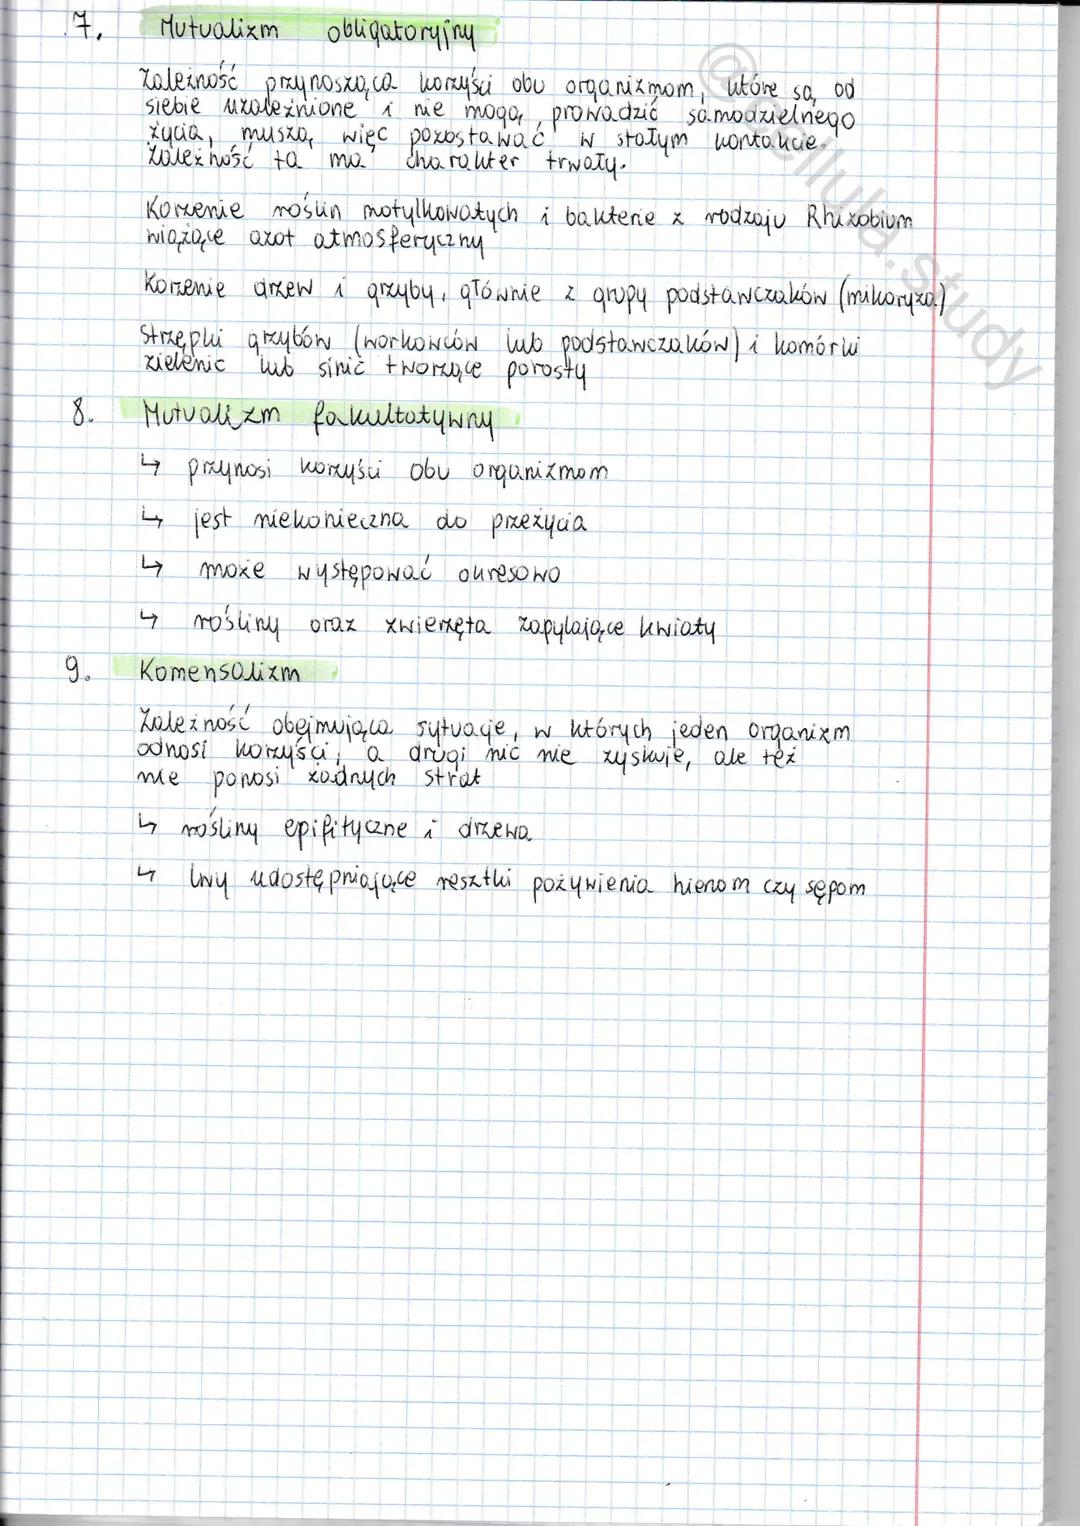 7. Mutualizm obligatoryjny
Zależność przynosząca korzyści obu organizmom, które są od
siebie uzależnione i nie mogą prowadzić samodzielnego
życia, muszą więc pozostawać w stałym kontakcie.
Zależność ta ma charakter trwały.
Korzenie roślin motylkowatych i bakterie z rodzaju Rhizobium
wiążące azot atmosferyczny
Korzenie drzew i grzyby, głównie z grupy podstawczaków (mikoryza)
Strzępki grzybów (workowców lub podstawczaków) i komórki
zielenic lub sinic tworzące porosty
8. Mutualizm fakultatywny
↳ przynosi korzyści obu organizmom
↳ jest niekonieczna do przeżycia
↳ może występować okresowo
↳ rośliny oraz zwierzęta zapylające kwiaty
9. Komensalizm
Zależność obejmująca sytuacje, w których jeden organizm
odnosi korzyści, a drugi nic nie zyskuje, ale też
nie ponosi żadnych strat
↳ rośliny epifityczne i drzewa
↳ lwy udostępniające resztki pożywienia hienom czy sępom